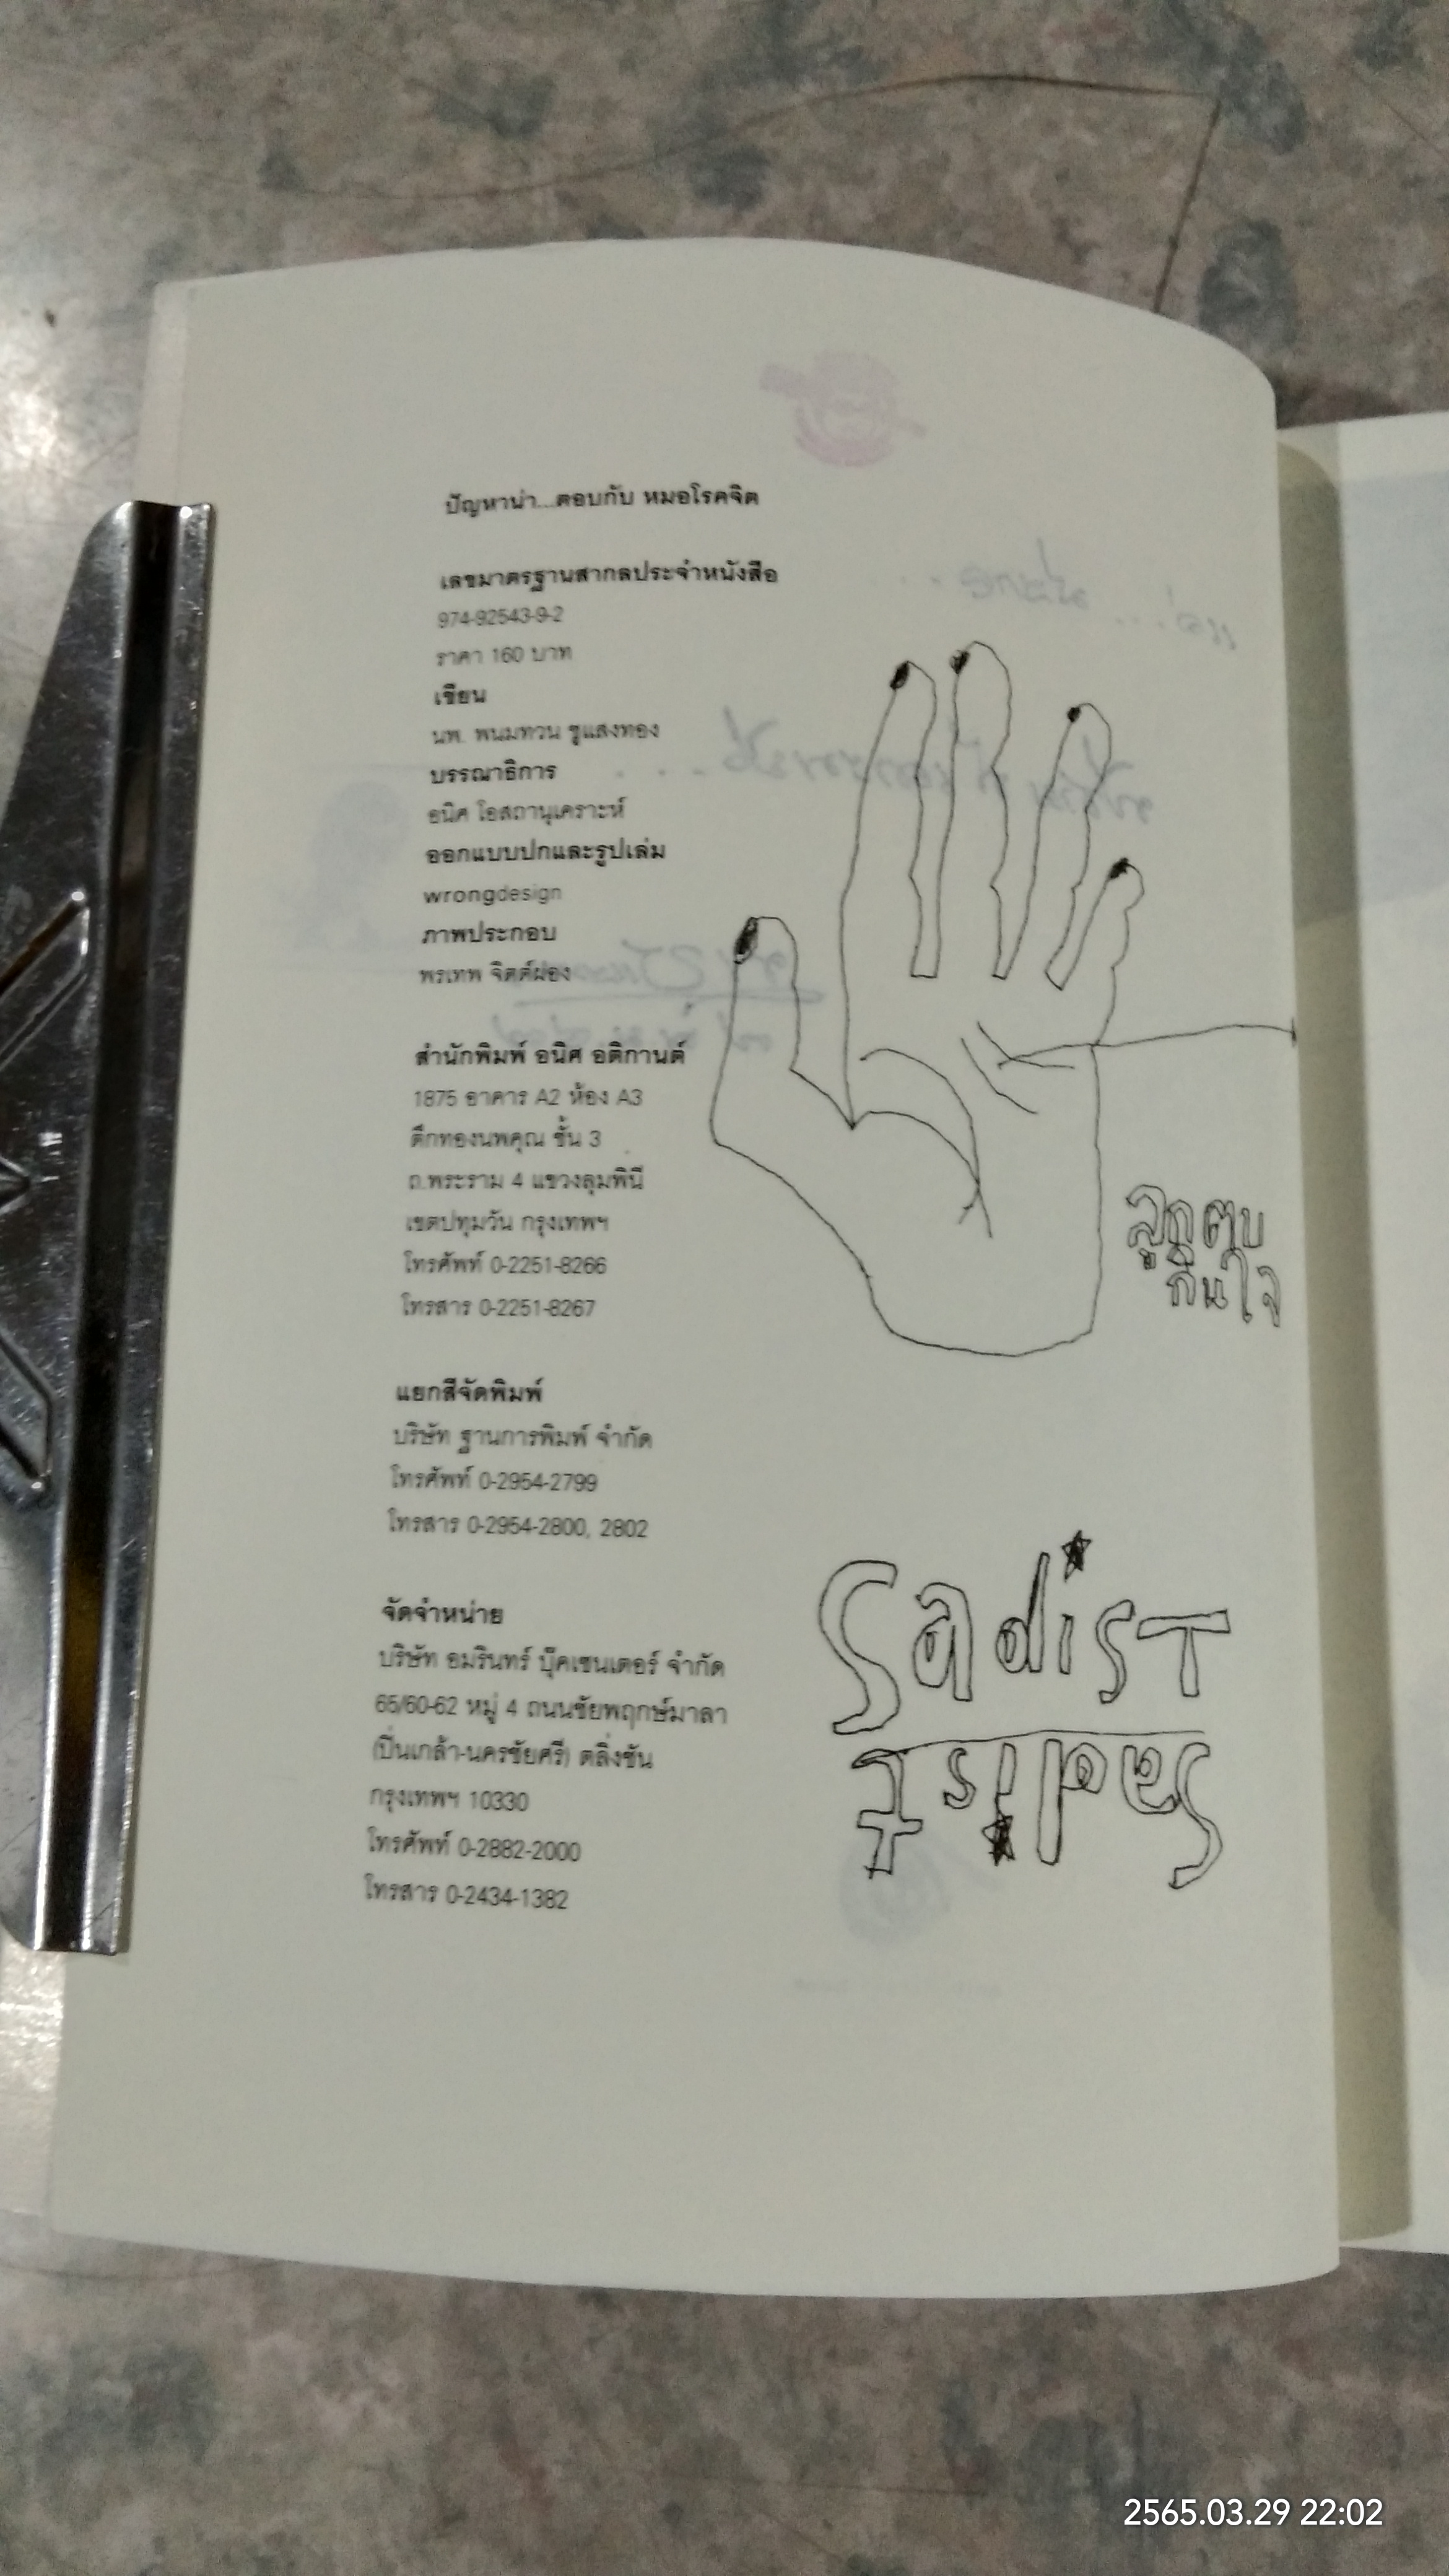 ปัญหาน่า...ตอบกับ หมอโรคจิต
เลขมาตรฐานสากลประจำหนังสือ
974-92543-9-2
ราคา 160 บาท
เขียน
นพ. พนมทวน ชูแสงทอง
บรรณาธิการ
อนิศ โอสถานุเคราะห์
ออกแบบปกและรูปเล่ม
wrongdesign
ภาพประกอบ
พรเทพ จิตต์ผ่อง
สำนักพิมพ์ อนิศ อติกานต์
1875 อาคาร A2 ห้อง A3
ตึกทองนพคุณ ชั้น 3
ถ.พระราม 4 แขวงลุมพินี
เขตปทุมวัน กรุงเทพฯ
โทรศัพท์ 0-2251-8266
โทรสาร 0-2251-8267
ลูกตบ
กินใจ
แยกสีจัดพิมพ์
บริษัท ฐานการพิมพ์ จำกัด
โทรศัพท์ 0-2954-2799
โทรสาร 0-2954-2800, 2802
จัดจำหน่าย
บริษัท อมรินทร์ บุ๊คเซนเตอร์ จำกัด
65/60-62 หมู่ 4 ถนนชัยพฤกษ์มาลา
(ปิ่นเกล้า-นครชัยศรี) ตลิ่งชัน
กรุงเทพฯ 10330
โทรศัพท์ 0-2882-2000
โทรสาร 0-2434-1382
SadisT
Sadist
2565.03.29 22:02